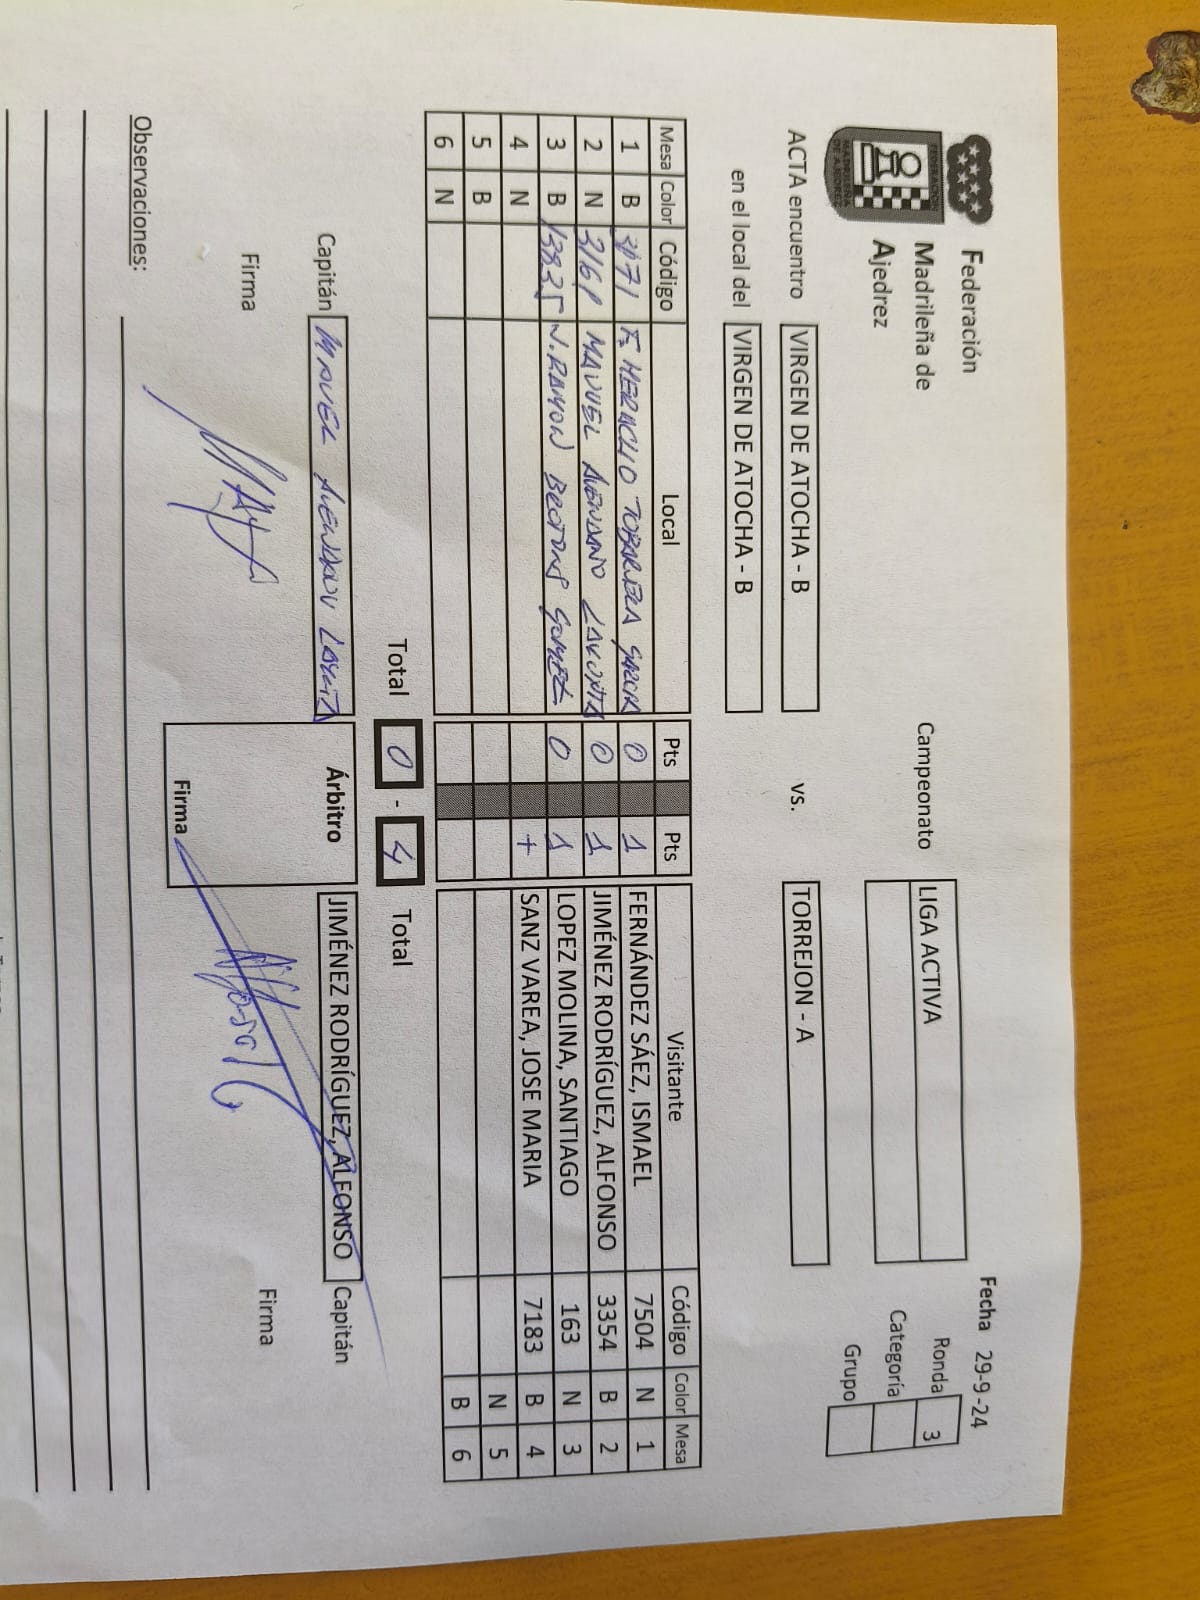 Federación
Madrileña de
Ajedrez
FEDERACION
MADRILEÑA
DE AJEDREZ
Fecha 29-9-24
Campeonato LIGA ACTIVA
Ronda 3
Categoría
Grupo
ACTA encuentro VIRGEN DE ATOCHA - B vs. TORREJON - A
en el local del VIRGEN DE ATOCHA - B
Mesa Color Código Local Pts Pts Visitante Código Color Mesa
1 B 3171 F. HERACLIO TOBARUELA GARCIA 0 1 FERNÁNDEZ SÁEZ, ISMAEL 7504 N 1
2 N 3161 MANUEL AVENDAÑO 0 1 JIMÉNEZ RODRÍGUEZ, ALFONSO 3354 B 2
3 B 13835 RAMON BROTONS GOMEZ 0 1 LOPEZ MOLINA, SANTIAGO 163 N 3
4 N + SANZ VAREA, JOSE MARIA 7183 B 4
5 B N 5
6 N B 6
Total 0 - 4 Total
Capitán MANUEL AVENDANO Árbitro JIMÉNEZ RODRÍGUEZ, ALFONSO Capitán
Firma Firma
Firma
Observaciones: